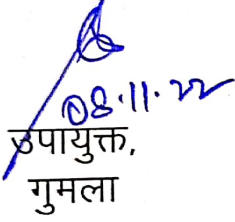 08.11.22
उपायुक्त,
गुमला